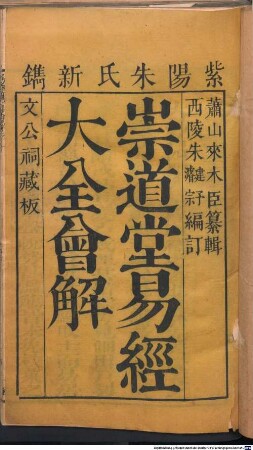 紫陽朱氏新鐫
蕭山來木臣纂輯
西陵朱𩧐宗編訂
崇道堂易經
大全會解
文公祠藏板